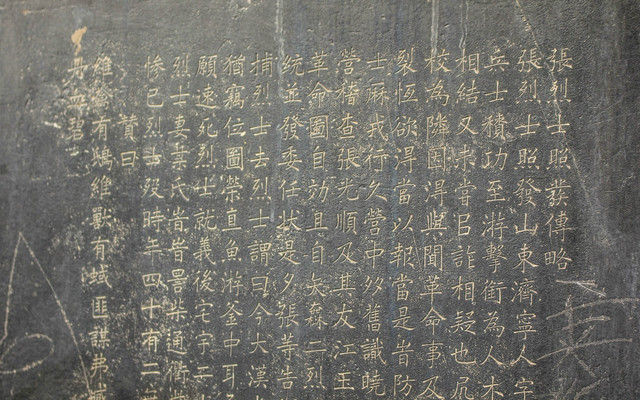 張烈士照發傳略
張烈士照發山東濟寧人字
兵士積功至游擊銜為人木
相結又未嘗㠯詐相疑也凥
校為隣因淂與聞革命事及
裂恆欲淂當以報當是旹防
士麻戎行久營中多舊識曉
營稽查張光順及其友江玉
革命圖自効且自矢森二烈
統並發委任狀是夕張等告
捕烈士去烈士謂曰今大漢
猶竊位圖榮直魚游釜中耳
願速死烈士就義後宅宇二
烈士妻氏旹通衢
慘已烈士歿時年四十有二
贊曰
維禽有鴆維獸有蜮匪謀弗
丹血碧